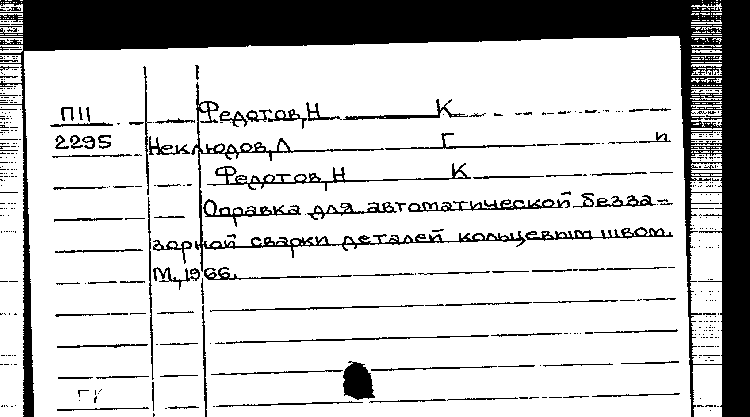 П11 Федотов, Н К
2295 Неклюдов, Л Г и
Федотов, Н К
Оправка для автоматической безза-
зорной сварки деталей кольцевым швом.
М., 1966.